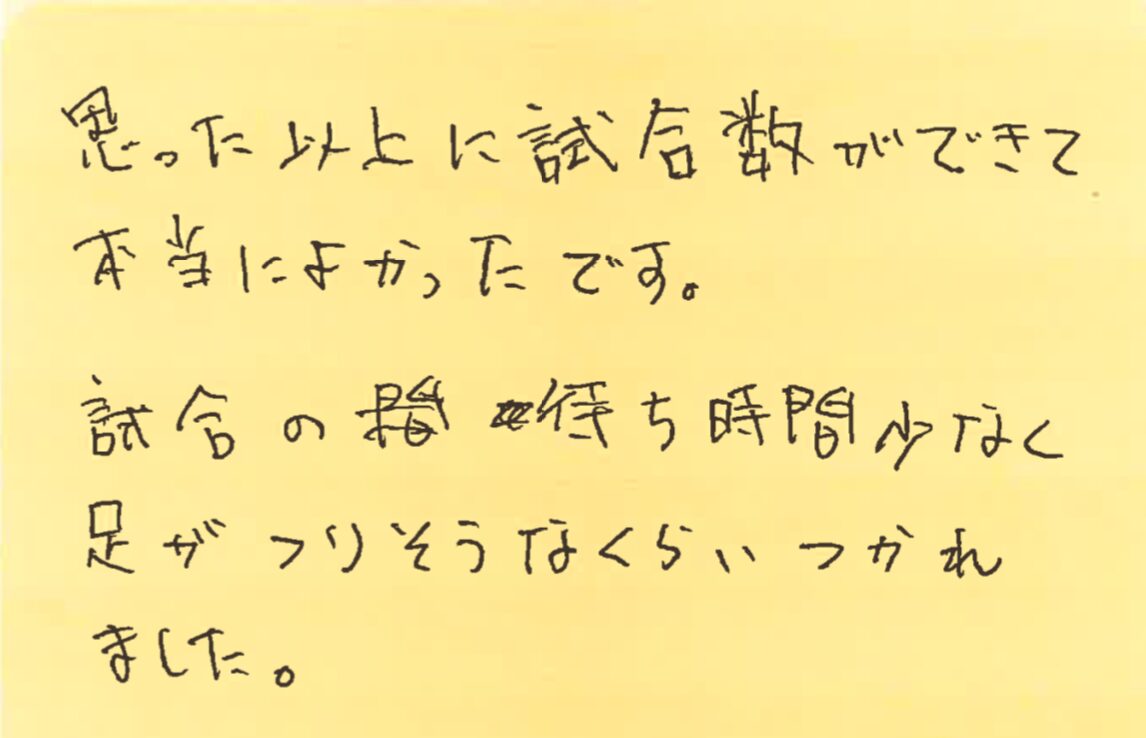 思った以上に試合数ができて
本当によかったです。
試合の 待ち時間少なく
足がつりそうなくらいつかれ
ました。